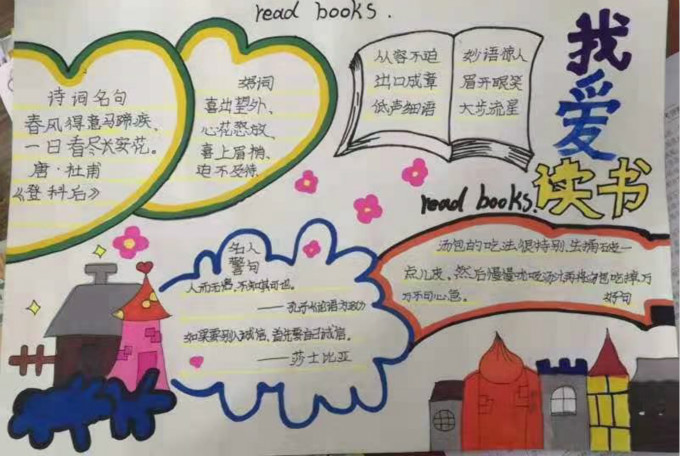 read books.
我爱读书
诗词名句
春风得意马蹄疾、
一日看尽长安花。
唐·杜甫
《登科后》
好词
喜出望外、
心花怒放、
喜上眉梢、
迫不及待、
从容不迫
出口成章
低声细语
妙语惊人
眉开眼笑
大步流星
read books.
名人
警句
人而无信,不知其可也。
——孔子《论语·为政》
如果要别人诚信,首先要自己诚信。
——莎士比亚
汤包的吃法很特别,先捅破一
点儿皮,然后慢慢地吸汤,再将包吃掉,万
万不可心急。
好句